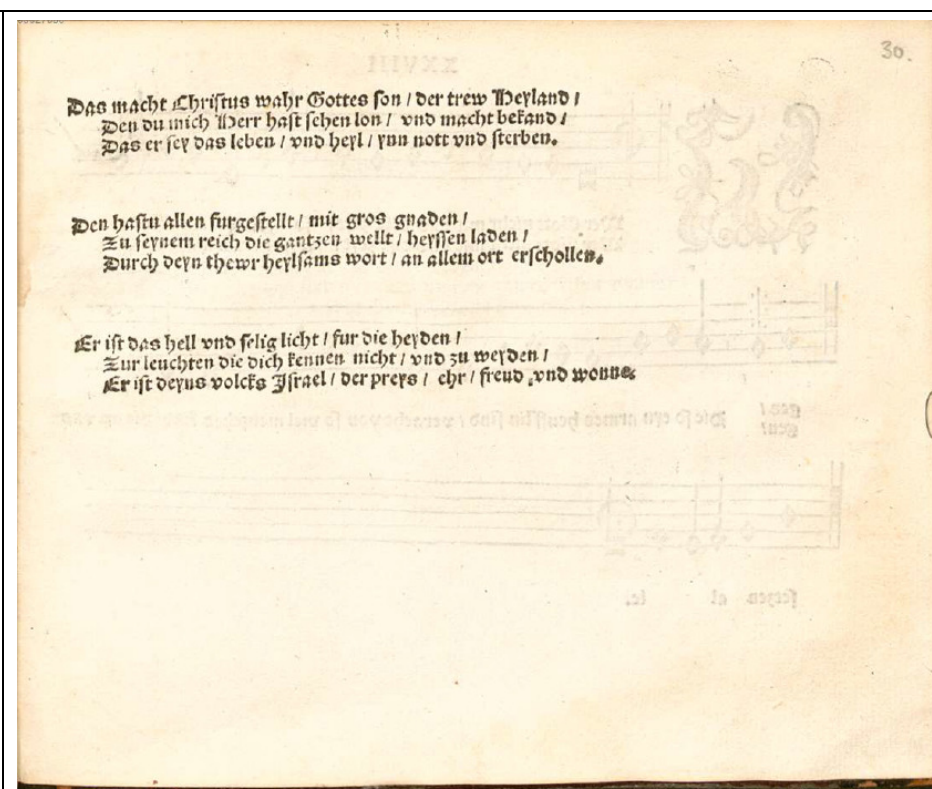 30.
Das macht Christus wahr Gottes son / der trew Heyland /
Den du mich Herr hast sehen lon / vnd macht bekand /
Das er sey das leben / vnd heyl / ynn nott vnd sterben.
Den hastu allen furgestellt / mit gros gnaden /
Zu seynem reich die gantzen wellt / heyssen laden /
Durch deyn thewr heylsams wort / an allem ort erschollen.
Er ist das hell vnd selig licht / fur die heyden /
Zur leuchten die dich kennen nicht / vnd zu weyden /
Er ist deyns volcks Israel / der preys / ehr / freud vnd wonne.